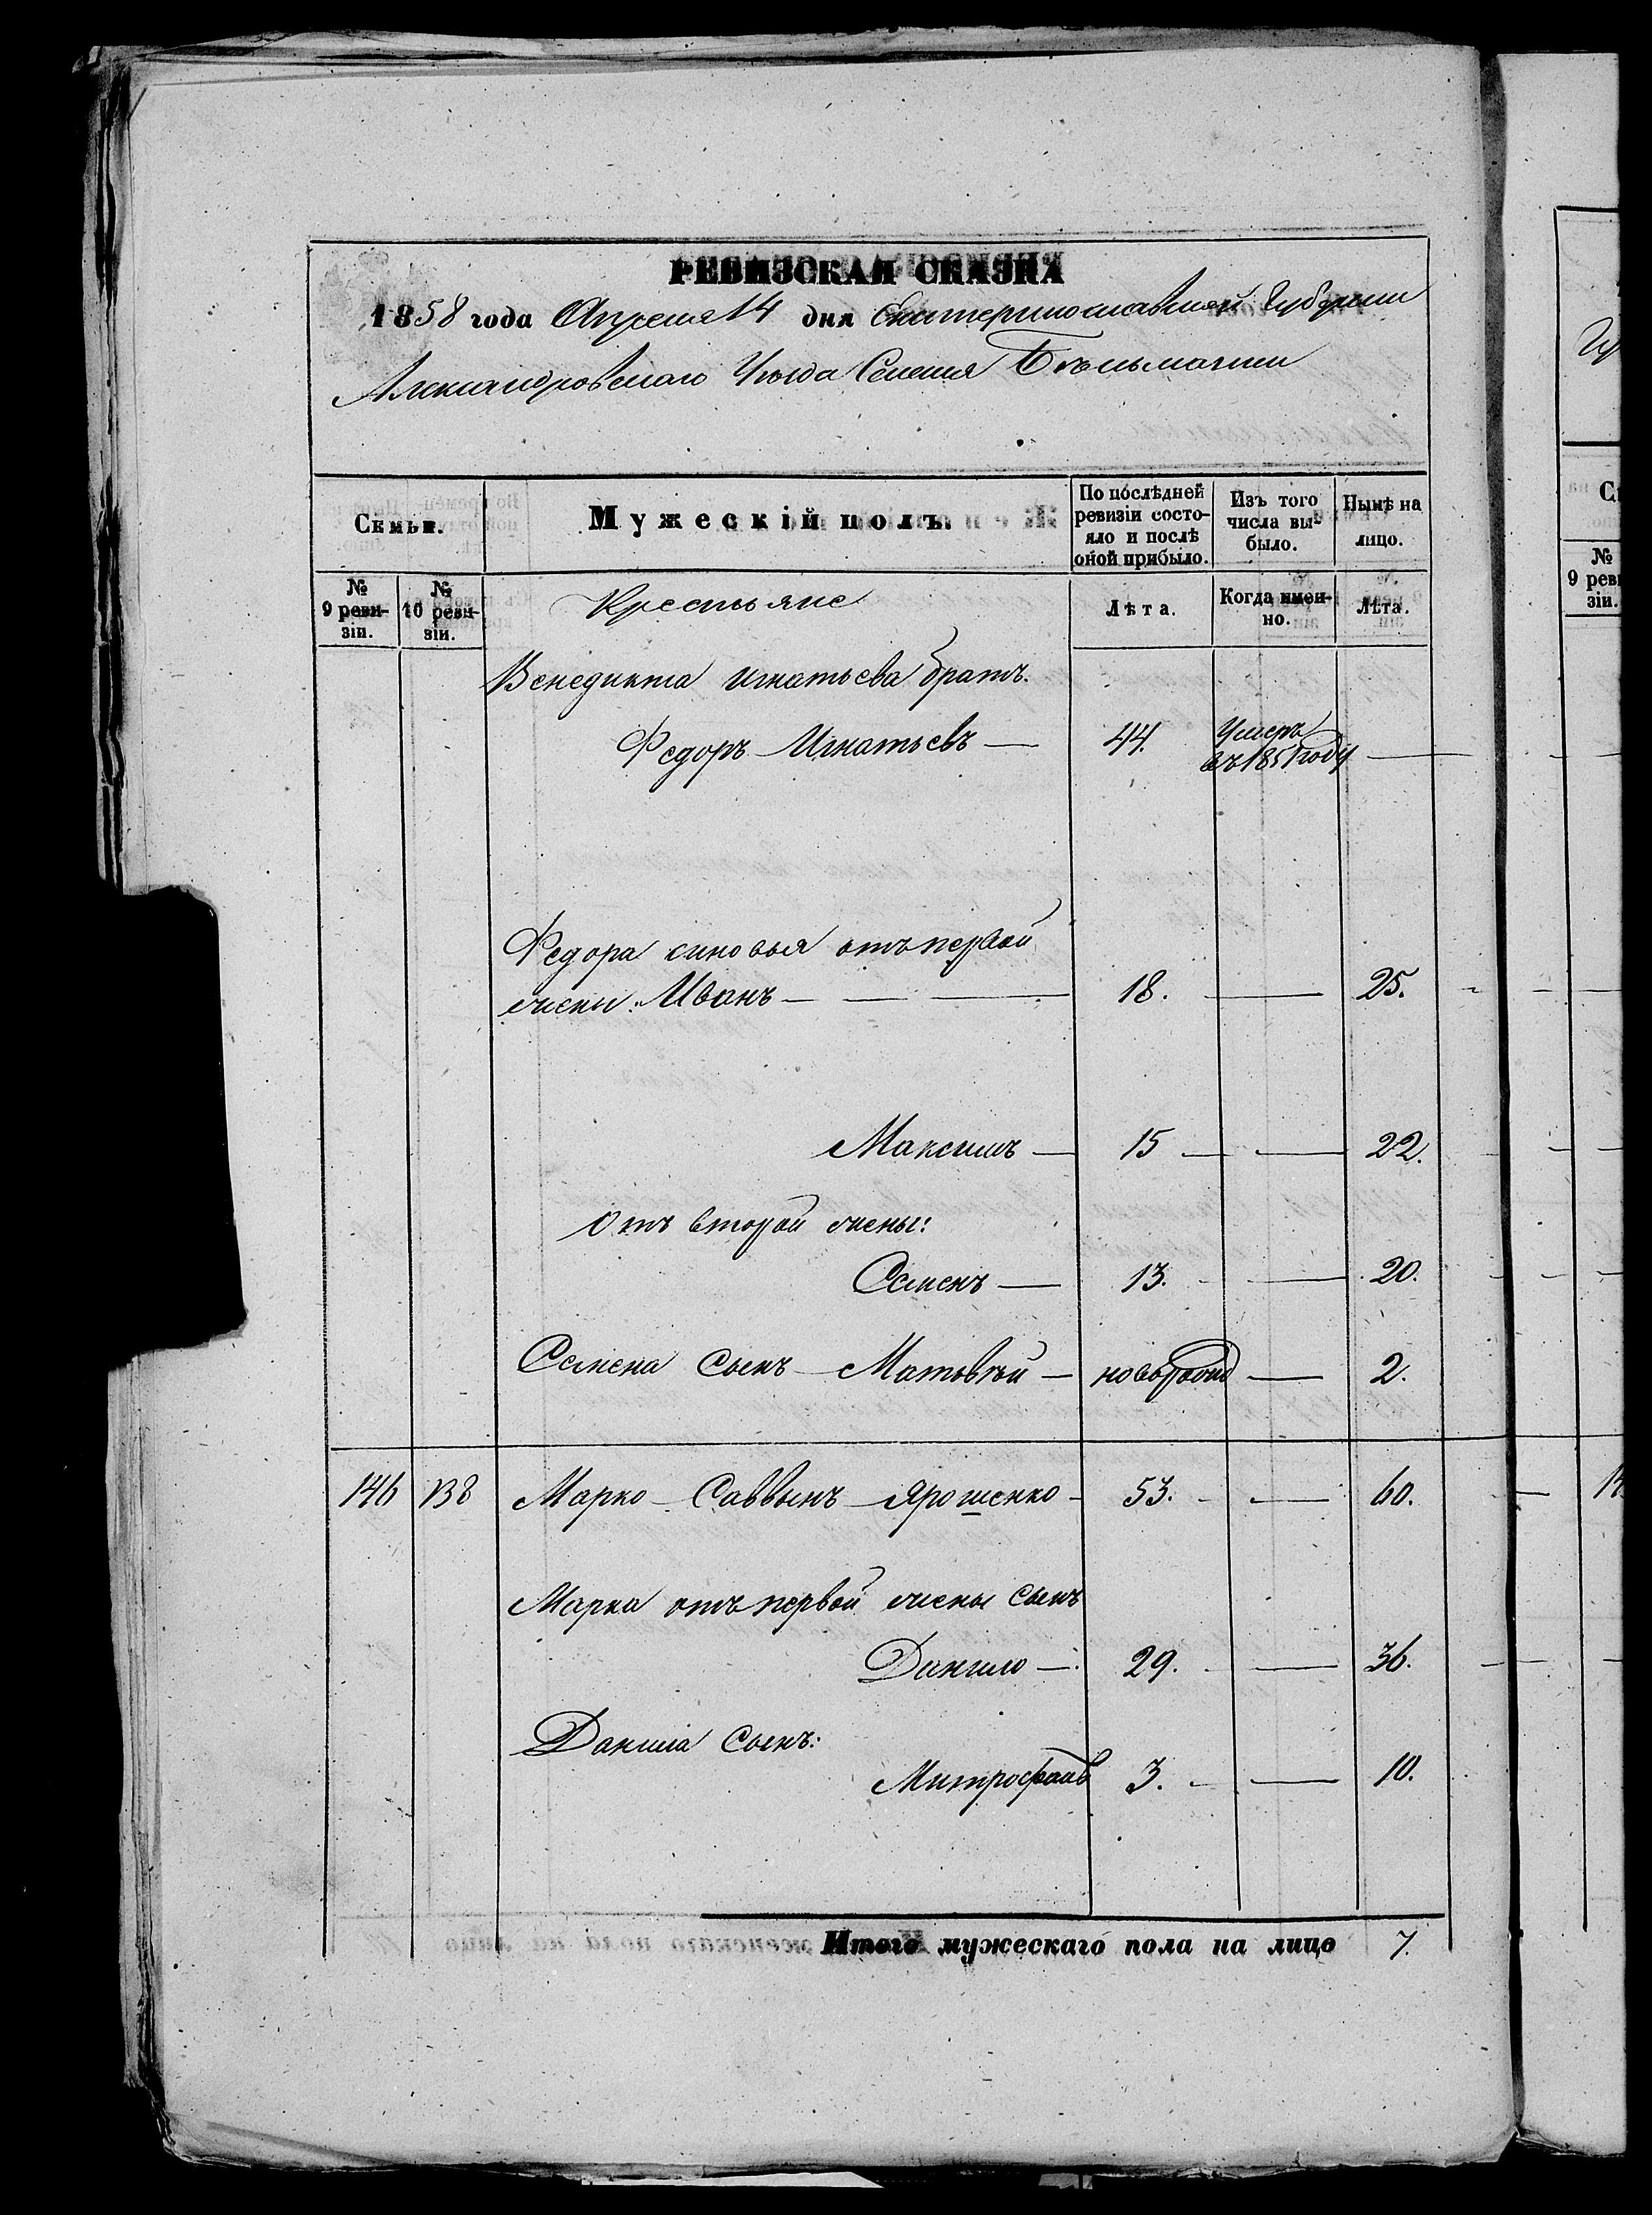 РЕВИЗСКАЯ СКАЗКА
1858 года Апреля 14 дня Екатеринославской Губернии
Александровского Уезда Селения Бѣльманки
Семьи.
Мужескій полъ.
По послѣдней ревизіи состояло и послѣ оной прибыло.
Изъ того числа выбыло.
Нынѣ на лицо.
№ 9 ревизіи.
№ 10 ревизіи.
Крестьяне
Лѣта.
Когда именно.
Лѣта.
Венедикта Игнатьева братъ.
Федоръ Игнатьевъ — 44. Умеръ въ 1851 году —
Федора синовья отъ первой
жены: Иванъ — 18. — 25.
Максимъ — 15 — 22.
Отъ второй жены:
Семенъ — 13. — 20.
Семена сынъ Матвѣй — новорожд — 2.
146 138 Марко Саввинъ Ярошенко 53. — 60.
Марка отъ первой жены сынъ
Данило — 29. — 36.
Данила сынъ:
Митрофанъ 3. — 10.
Итого мужескаго пола на лицо 7.
№
9 реви
зіи.